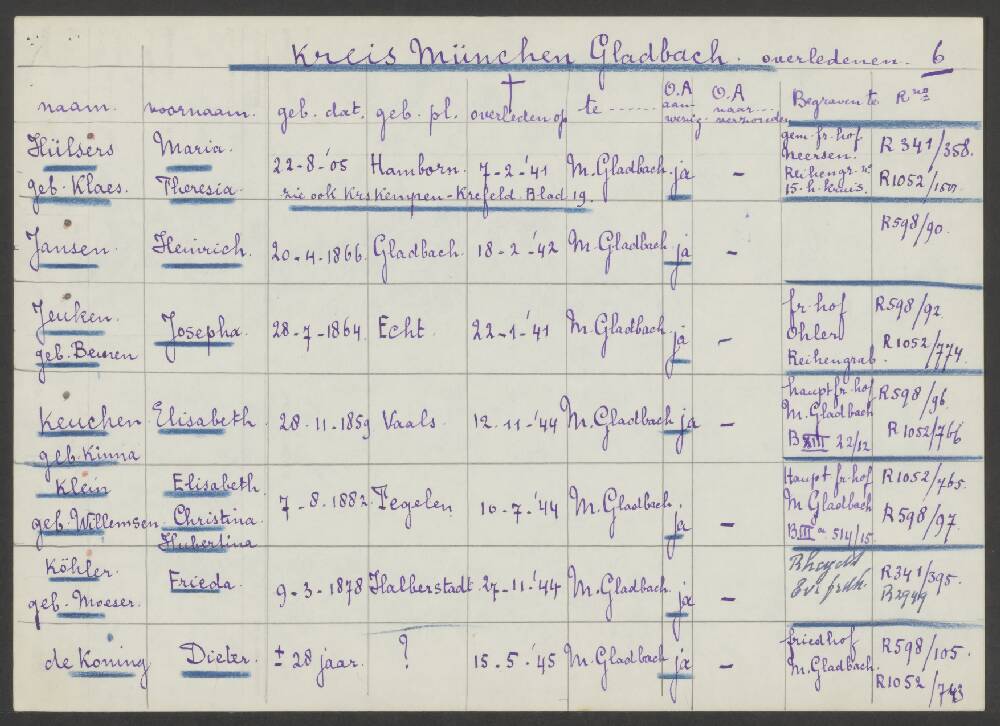 Kreis München Gladbach. overledenen. 6
naam. voornaam. geb. dat. geb. pl. † overleden op te ------ O.A aan- wezig. O.A naar... verzonden Begraven te R no
Hülsers Maria. gem. fr. hof R 341/358.
22-8-'05 Hamborn. 7-2-'41 M. Gladbach. ja - Neersen.
geb. Klaes. Theresia. Reihengr. R1052/
zie ook Krs Kempen-Krefeld Blad 19. 15-h. Kruis.
R598/90.
Jansen. Heinrich. 20-4-1866. Gladbach. 18-2-'42 M. Gladbach ja -
Jeuken. fr. hof R598/92
Josepha. 28-7-1864. Echt. 22-1-'41 M. Gladbach ja - Ohler
geb. Beunen Reihengrab. R1052/774.
Hauptfr. hof R598/96
Keuchen Elisabeth. 28-11-1859 Vaals. 12-11-'44 M. Gladbach ja - M. Gladbach
geb. Kinna B XIII 22/12 R1052/766
Klein Elisabeth. Haupt fr. hof R1052/765.
7-8-1882. Tegelen 10-7-'44 M. Gladbach. ja - M. Gladbach
geb. Willemsen. Christina. R598/97.
Hubertina B III a 514/15.
Köhler. Frieda. 9-3-1878 Halberstadt 27-11-'44 M. Gladbach. ja - Rheydt R341/395.
geb. Moeser. R2949
friedhof R598/105.
de Koning Dieter. ± 28 jaar. ? 15-5-'45 M. Gladbach ja - M. Gladbach.
R1052/743